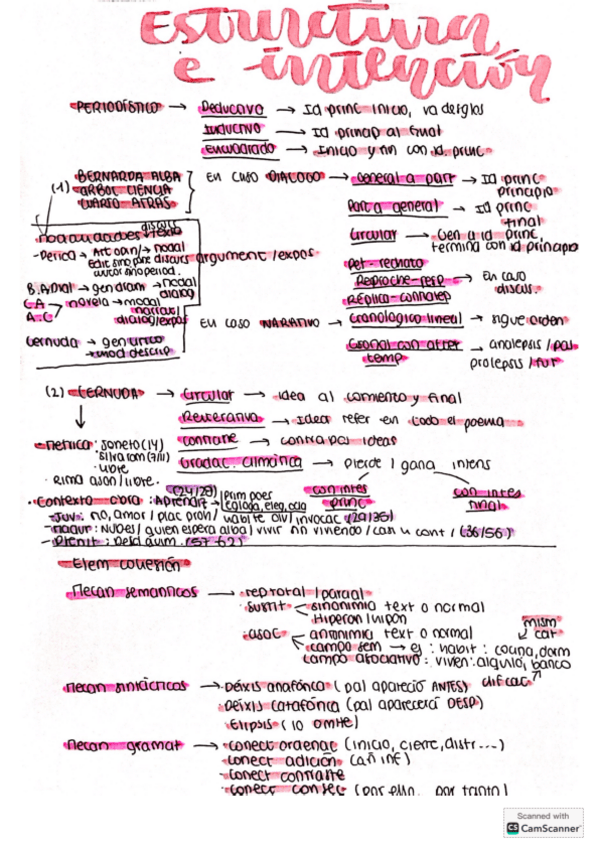 Estructura
e intención
PERIODÍSTICO → Deductivo → Id princ inicio, va desglos
Inductivo → Id princip al final
Encuadrado → Inicio y fin con id. princ
BERNARDA ALBA
(1) ARBOL CIENCIA
CUARTO ATRAS
EN CASO DIALOGO → General a part → Id princ principio
Part a general → Id princ final
Circular → Gen a id princ, termina con id principio
Pet - rechazo
Reproche-resp → En caso discus.
Réplica-contrarep
discurs
argument/expos
B.Alba → gen dram → modal dialog
C.A → novela → modal
A.C narrat/
dialog/expos
Cernuda → gen lírico
→ mod descrip
EN CASO NARRATIVO → Cronológico lineal → sigue orden
temp → analepsis / pas
prolepsis / fut
(2) CERNUDA → Circular → Idea al comienzo y final
Reiterativa → Idea refer en todo el poema
Contraste → contrapos ideas
Gradac. climática → pierde / gana intens
con intens princ
con intens final
- Métrica: soneto (14)
silva rom (7/11)
libre
· Rima ason/libre.
· Contexto obra: (24/28) / Prim poes
Egloga, eleg, oda
- Juv: no, amor / plac proh / habite olv / invocac (29/35)
- Madur: Nubes / quien espera alba / vivir sin viviendo / con h cont (36/56)
- Plenit: Desol quim. (57-62)
- Elem cohesión
Mecan semanticos → · rep total / parcial
· sustit < sinonimia text o normal
Hiperon / hipon
· asoc < antonimia text o normal
campo sem → ej: habit: cocina, dorm
mism cat
campo asociativo: viven: alquila, banco
dif cat
Mecan sintácticos → · Déixis anafórica (pal apareció ANTES)
· Deíxis catafórica (pal aparecerá DESP)
· Elipsis (lo omite)
Mecan gramat → · conect ordenac (inicio, cierre, distr...)
· conect adición (añ inf)
· conect contraste
· conect consec (por ello, por tanto)
Scanned with
CS CamScanner